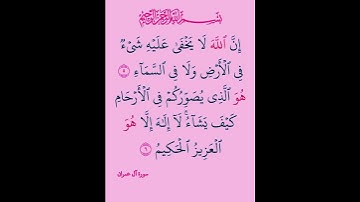 بِسْمِ ٱللَّهِ ٱلرَّحْمَٰنِ ٱلرَّحِيمِ
إِنَّ ٱللَّهَ لَا يَخْفَىٰ عَلَيْهِ شَىْءٌ
فِى ٱلْأَرْضِ وَلَا فِى ٱلسَّمَآءِ ٥
هُوَ ٱلَّذِى يُصَوِّرُكُمْ فِى ٱلْأَرْحَامِ
كَيْفَ يَشَآءُ ۚ لَآ إِلَٰهَ إِلَّا هُوَ
ٱلْعَزِيزُ ٱلْحَكِيمُ ٦
سورة آل عمران